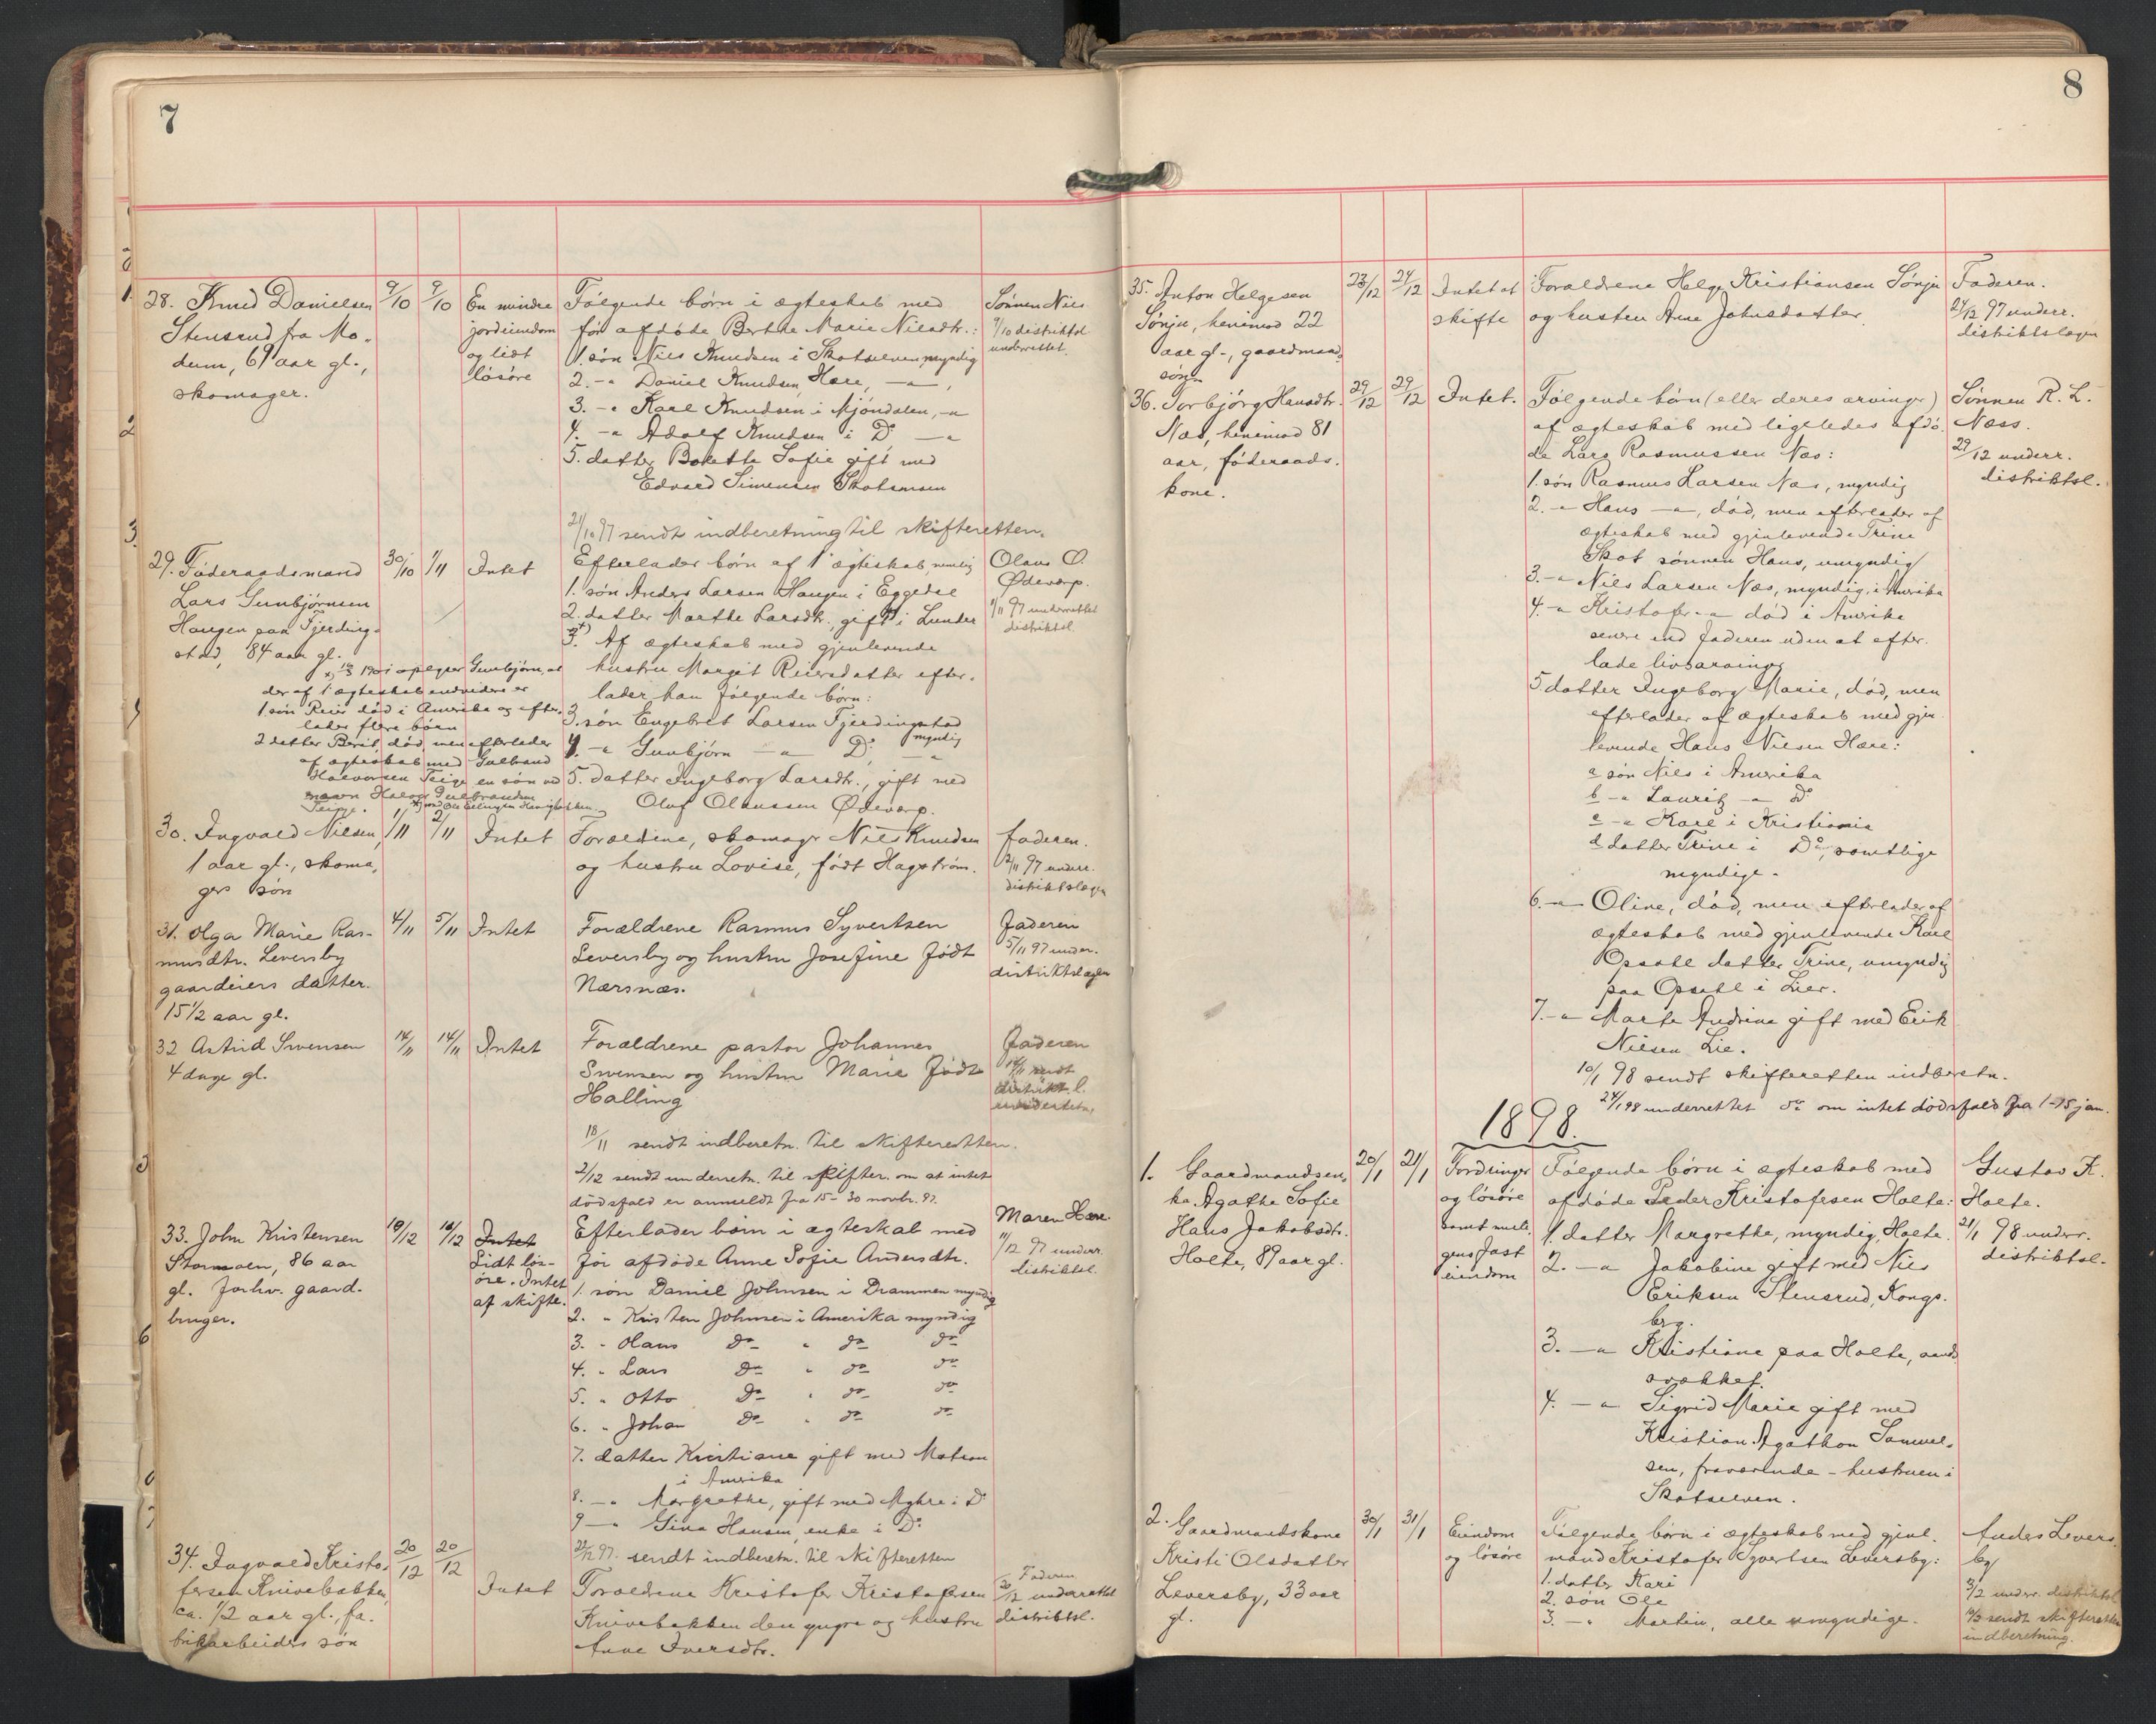 7
28. Knud Danielsen
Stensrud fra Mo-
dum, 69 aar gl.,
skomager.
9/10
9/10
En mindre
jordeiendom
og lidt
løsøre
Følgende børn i ægteskab med
før afdøde Berthe Marie Nilsdtr.:
1. søn Nils Knudsen i Skotselven, myndig
2. -" Daniel Knudsen, Hære, -"-,
3. -" Karl Knudsen i Mjøndalen, -"
4. -" Adolf Knudsen i Do -"
5. datter Bolette Sofie gift med
Edvard Simensen
Sønnen Nils
9/10 distriktsl.
underrettet.
21/10 97 sendt indberetning til skifteretten.
29. Føderaadsmand
Lars Gunbjørnsen
Haugen paa Fjerding-
stad, 84 aar gl.
30/10
1/11
Intet
Efterlader børn af 1' ægteskab, nemlig
1. søn Anders Larsen Haugen i Eggedal
2. datter Marthe Larsdtr., gift i Lunder
3. x) Af ægteskab med gjenlevende
hustru Margit Reiersdatter efter-
lader han følgende børn:
3. søn Engebret Larsen Fjerdingstad
myndig
4. -" Gunbjørn -"- Do. -"
5. datter Ingeborg Larsdtr., gift med
Oluf Olaussen Ødeværp.
Olaus O.
Ødeværp.
1/11 97 underrettet
distriktsl.
oplyser Gunbjørn, at
der af 1' ægteskab endvidere er
1 søn Reier død i Amerika og efter-
lader flere børn
2 datter Berit, død, men efterlader
af ægteskab med Gulbrand
Halvorsen Teige en søn ved
navn Halvor Gulbrandsen
Teige.
30. Ingvald Nilsen,
1 aar gl., skoma-
gers søn
1/11
2/11
Intet
Forældrene, skomager Nils Knudsen
og hustru Lovise, født Hagstrøm.
faderen.
2/11 97 underr.
distriktslægen
31. Olga Marie Ras-
musdtr. Leversby
gaardeiers datter.
15 1/2 aar gl.
4/11
5/11
Intet
Forældrene Rasmus Syvertsen
Leversby og hustru Josefine født
Nærsnæs.
faderen
5/11 97 under.
distriktslægen
32 Astrid Svensen
4 dage gl.
14/11
14/11
Intet
Forældrene pastor Johannes
Svensen og hustru Marie født
Halling
faderen
14/11 sendt
distrikt. l.
18/11 sendt indberetn. til skifteretten.
2/12 sendt underretn. til skifter. om at intet
dødsfald er anmeldt fra 15-30 novbr. 97.
33. John Kristensen
Stormoen, 86 aar
gl. forhv. gaard-
bruger.
10/12
10/12
Intet
Lidt løs-
øre. Intet
af skifte.
Efterlader børn i ægteskab med
før afdøde Anne Sofie Andersdtr.
1. søn Daniel Johnsen i Drammen myndig
2. " Kristen Johnsen i Amerika myndig
3. " Hans Do " do do
4. " Lars Do " do do
5. " Otto Do " do do
6. " Johan Do " do do
7. datter Kristiane gift med Matson
i Amerika
8. -" Margrethe, gift med Myhre i Do
9 -" Gina Hansen, enke i Do.
Maren Hære.
11/12 97 underr.
distriktsl.
22/12 97. sendt indberetn. til skifteretten
34. Ingvald Kristo-
fersen Knivebakken,
ca. 1/2 aar gl., fa-
brikarbeiders søn
20/12
20/12
Intet
Forældrene Kristofer Kristofersen
Knivebakken den yngre og hustru
Anne Iversdtr.
Faderen
20/12 underrettet
distriktsl.
8
35. Anton Helgesen
Sønju, henimod 22
aar gl., gaardmands
søn
23/12
24/12
Intet at
skifte
Forældrene Helge Kristiansen Sønju
og hustru Anne Johnsdatter
Faderen.
24/12 97 underr.
distriktslægen
36. Torbjørg Hansdtr.
Næs, henimod 81
aar, føderaads-
kone.
29/12
29/12
Intet.
Følgende børn (eller deres arvinger)
af ægteskab med ligeledes afdø-
de Lars Rasmussen Næs:
1. søn Rasmus Larsen Næs, myndig
2. -" Hans -"-, død, men efterlader af
ægteskab med gjenlevende Trine
Skot sønnen Hans, umyndig
3. -" Nils Larsen Næs, myndig, i Amerika
4. -" Kristofer -" død i Amerika
senere end faderen uden at efter-
lade livsarvinger
5. datter Ingeborg Marie, død, men
efterlader af ægteskab med gjen-
levende Hans Nilsen Hære:
a søn Nils i Amerika
b -" Lauritz -" Do
c -" Karl i Kristiania
d datter Trine i Do, samtlige
myndige.
6. -" Oline, død, men efterlader af
ægteskab med gjenlevende Karl
Opsahl datter Trine, umyndig
paa Opsahl i Lier.
7. -" Marte Andrine gift med Erik
Nilsen Lie.
Sønnen R. L.
Næss.
29/12 underr.
distriktsl.
10/1 98 sendt skifteretten indberetn.
24/1 98 underrettet do om intet dødsfald fra 1-15 jan.
1898.
1. Gaardmandsen-
ke Agathe Sofie
Hans Jakobsdtr.
Holte, 89 aar gl.
20/1
21/1
Fordringer
og løsøre
samt muli-
gens fast
eiendom
Følgende børn i ægteskab med
afdøde Peder Kristofersen Holte:
1. datter Margrethe, myndig, Holte.
2. -" Jakobine gift med Nils
Eriksen Stensrud, Kongs-
brg.
3. -" Kristiane paa Holte, aands
svækket.
4. -" Sigrid Marie gift med
Kristian Agathon Samuel-
sen, fraværende - hustruen i
Skotselven.
Gustav K.
Holte.
21/1 98 underr.
distriktsl.
2. Gaardmandskone
Kristi Olsdatter
Leversby, 33 aar
gl.
30/1
31/1
Eiendom
og løsøre
Følgende børn i ægteskab med gjenl.
mand Kristofer Syvertsen Leversby:
1. datter Kari
2. søn Ole
3. -" Martin, alle umyndige.
Anders Levers-
by
3/2 underr. distriktsl.
sendt skifteretten
indberetning.